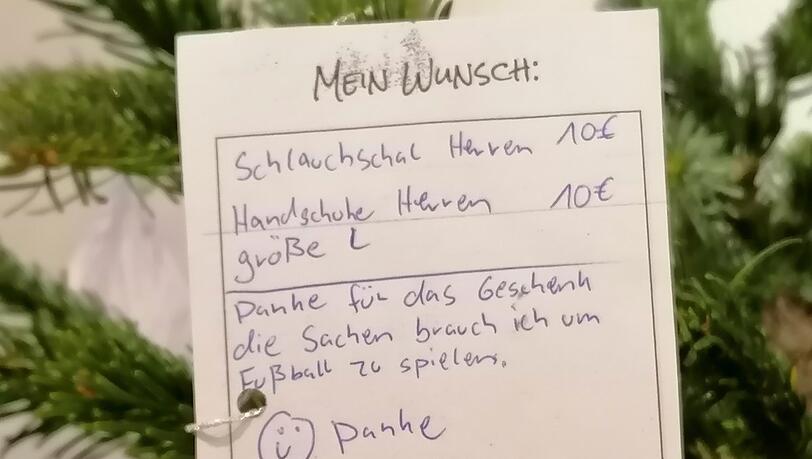 MEIN WUNSCH:
Schlauchschal Herren 10€
Handschuhe Herren 10€
größe L
Danke für das Geschenk
die Sachen brauch ich um
Fußball zu spielen.
Danke